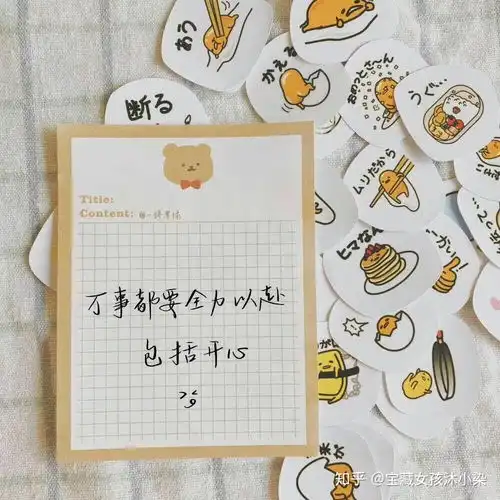 あう
かえる
おめっとさ〜ん
うぐぃ…
断る
ムリだから
ヒマなん
Title:
Content:
万事都要全力以赴
包括开心
知乎 @宝藏女孩沐小染